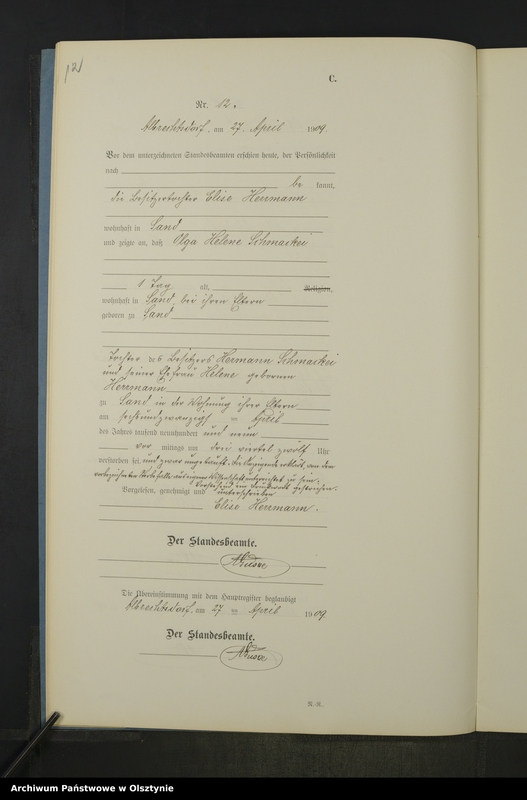 12
C.
Nr. 12.
Albrechtsdorf, am 27. April 1909.
Vor dem unterzeichneten Standesbeamten erschien heute, der Persönlichkeit
nach
be kannt,
die Besitzertochter Elise Herrmann
wohnhaft in Sand
und zeigte an, daß Olga Helene Schmaskei
1 Tag alt, Religion,
wohnhaft in Sand, bei ihren Eltern
geboren zu Sand
Tochter des Besitzers Hermann Schmaskei
und seiner Ehefrau Helene geborenen
Herrmann
zu Sand in der Wohnung ihrer Eltern
am sechsundzwanzigsten April
des Jahres tausend neunhundert und neun
vor mittags um drei viertel zwölf Uhr
verstorben sei und zwar ungetauft. Die Anzeigende erklärt, von dem
Sterbefalle aus eigener Wissenschaft unterrichtet zu sein.
Vorstehend ein Druckwort gestrichen.
Vorgelesen, genehmigt und unterschrieben
Elise Herrmann.
Der Standesbeamte.
Die Übereinstimmung mit dem Hauptregister beglaubigt
Albrechtsdorf, am 27. April 1909
Der Standesbeamte.
N.-R.
Archiwum Państwowe w Olsztynie